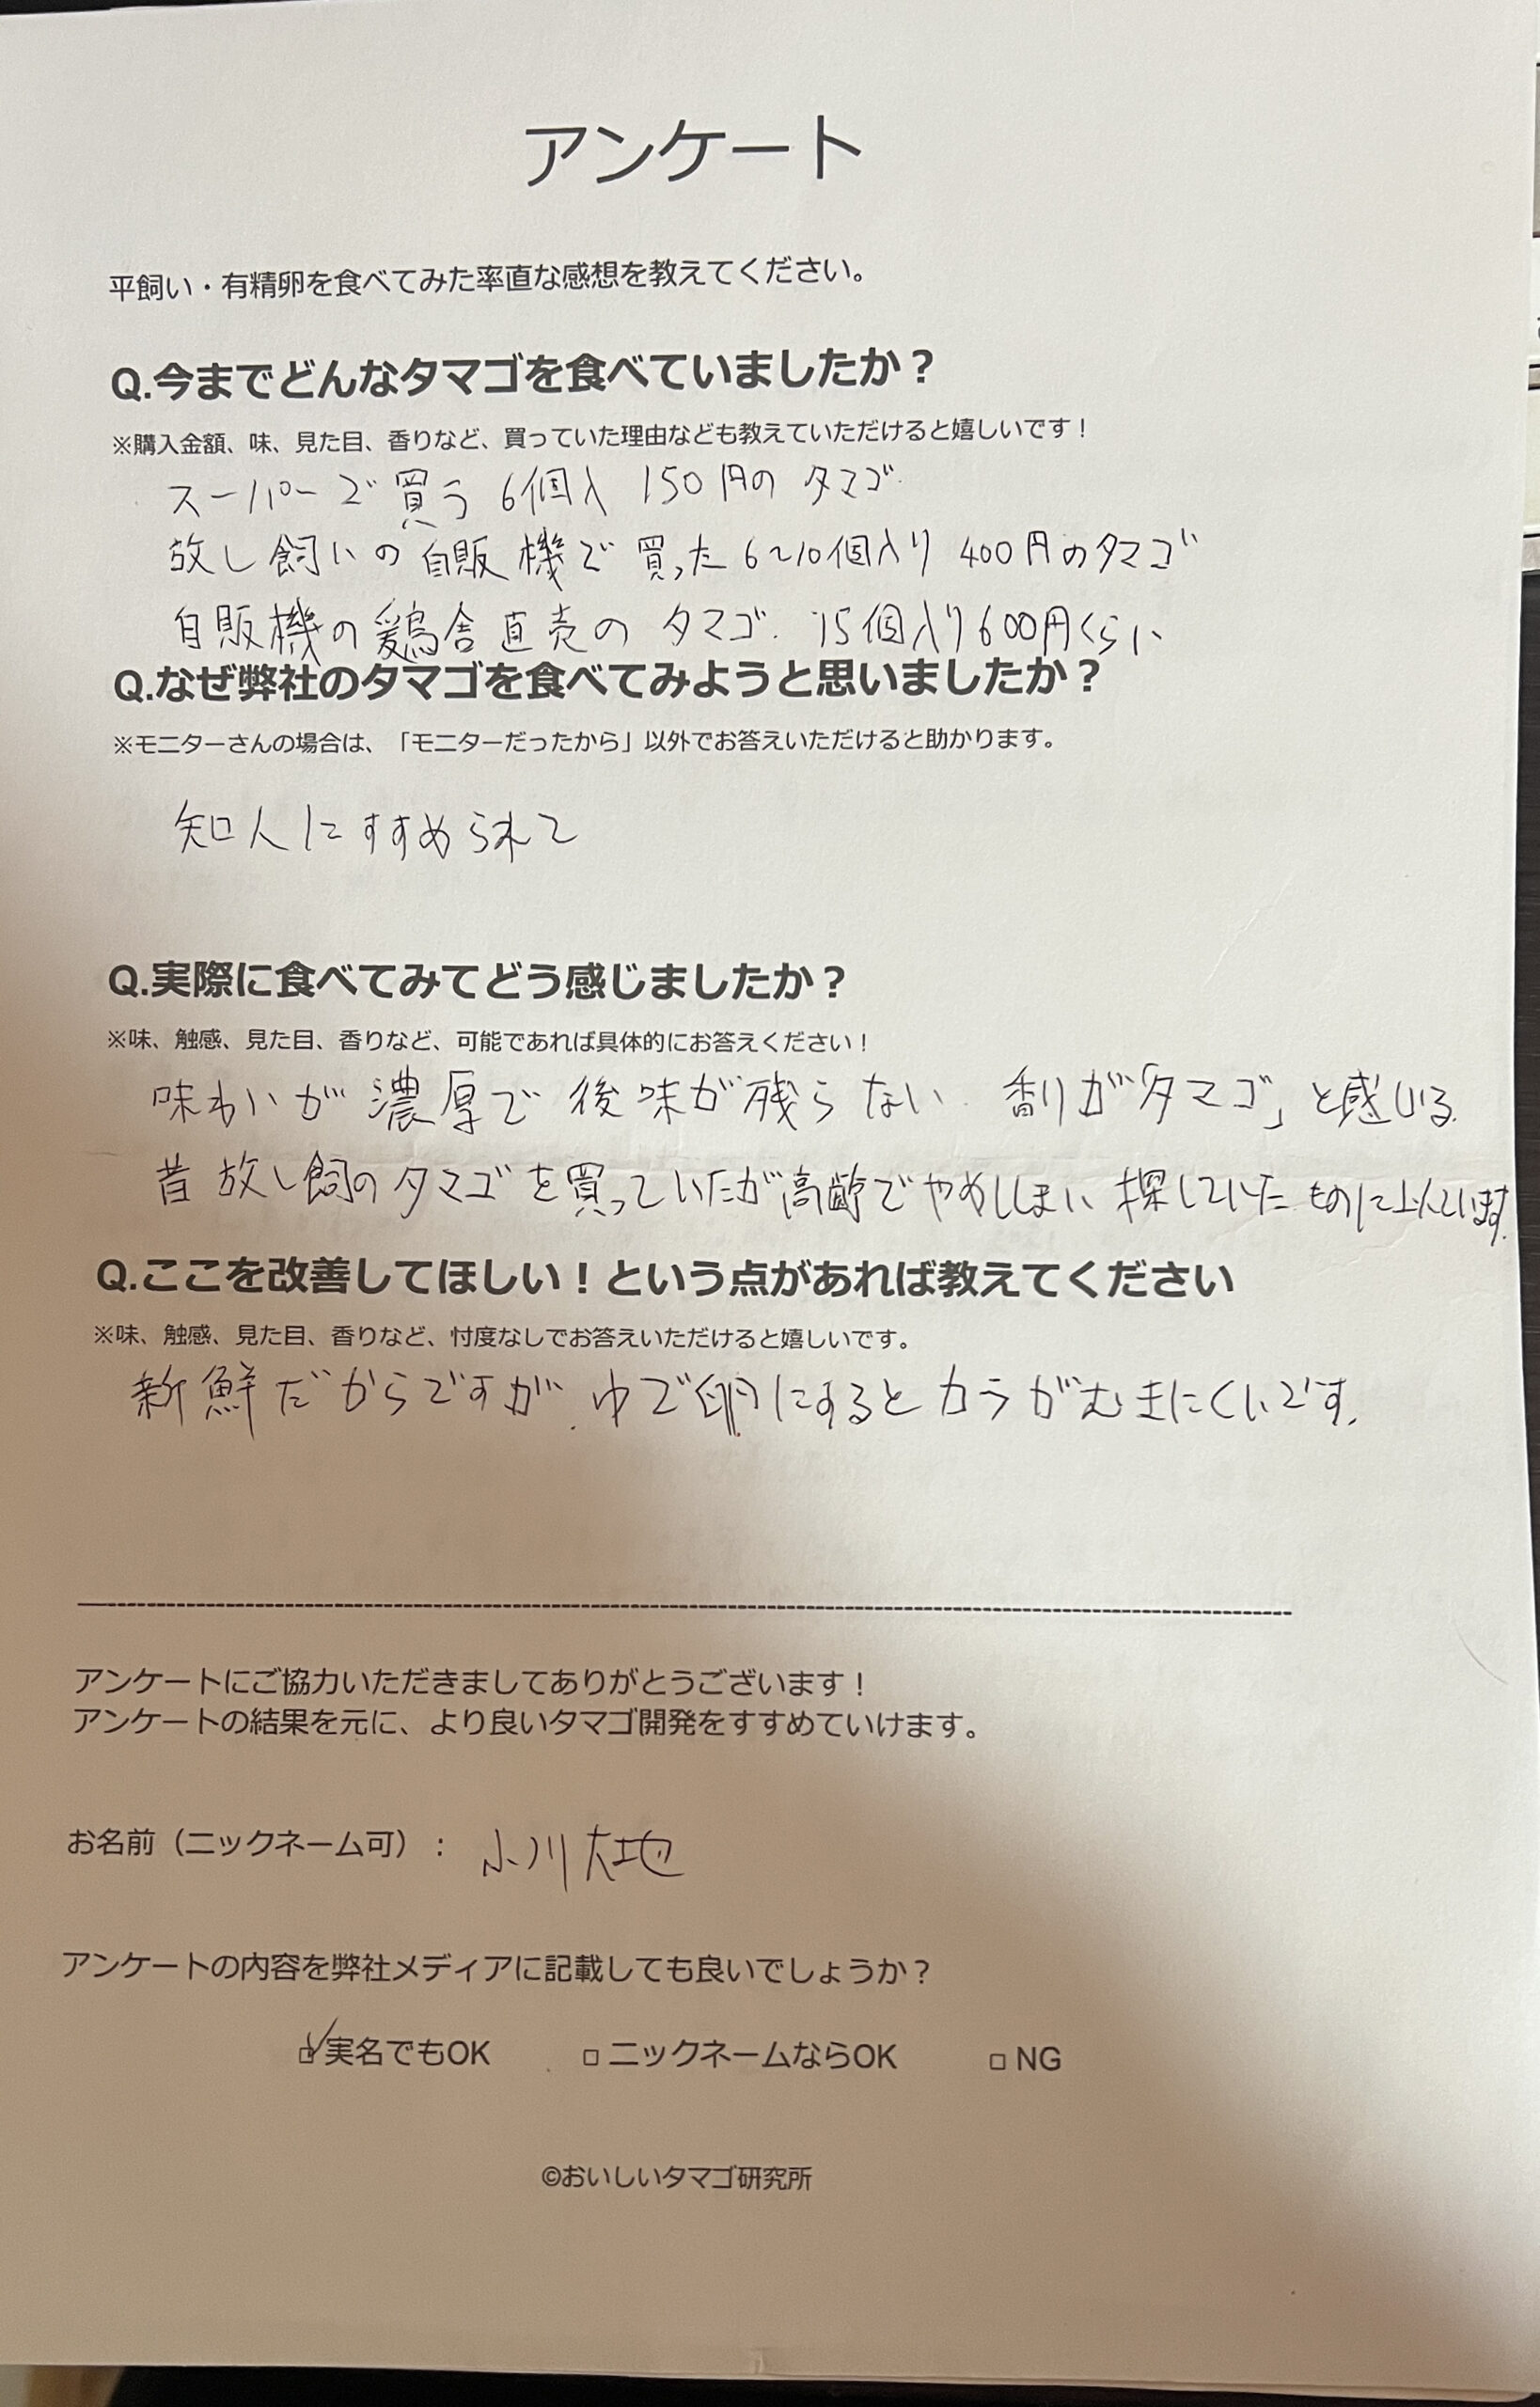 アンケート
平飼い・有精卵を食べてみた率直な感想を教えてください。
Q.今までどんなタマゴを食べていましたか？
※購入金額、味、見た目、香りなど、買っていた理由なども教えていただけると嬉しいです！
スーパーで買う 6個入 150円の タマゴ
放し飼いの自販機で買った6〜10個入り 400円のタマゴ
自販機の鶏舎直売の タマゴ. 15個入り600円くらい
Q.なぜ弊社のタマゴを食べてみようと思いましたか？
※モニターさんの場合は、「モニターだったから」以外でお答えいただけると助かります。
知人にすすめられて
Q.実際に食べてみてどう感じましたか？
※味、触感、見た目、香りなど、可能であれば具体的にお答えください！
味わいが濃厚で後味が残らない 香りが「タマゴ」と感じる.
昔放し飼のタマゴを買っていたが高齢でやめてしまい 探していた ものに
Q.ここを改善してほしい！という点があれば教えてください
※味、触感、見た目、香りなど、忖度なしでお答えいただけると嬉しいです。
新鮮だからですが、ゆで卵にするとカラがむきにくいです.
アンケートにご協力いただきましてありがとうございます！
アンケートの結果を元に、より良いタマゴ開発をすすめていけます。
お名前（ニックネーム可）： 小川大地
アンケートの内容を弊社メディアに記載しても良いでしょうか？
☑実名でもOK □ ニックネームならOK □ NG
©おいしいタマゴ研究所